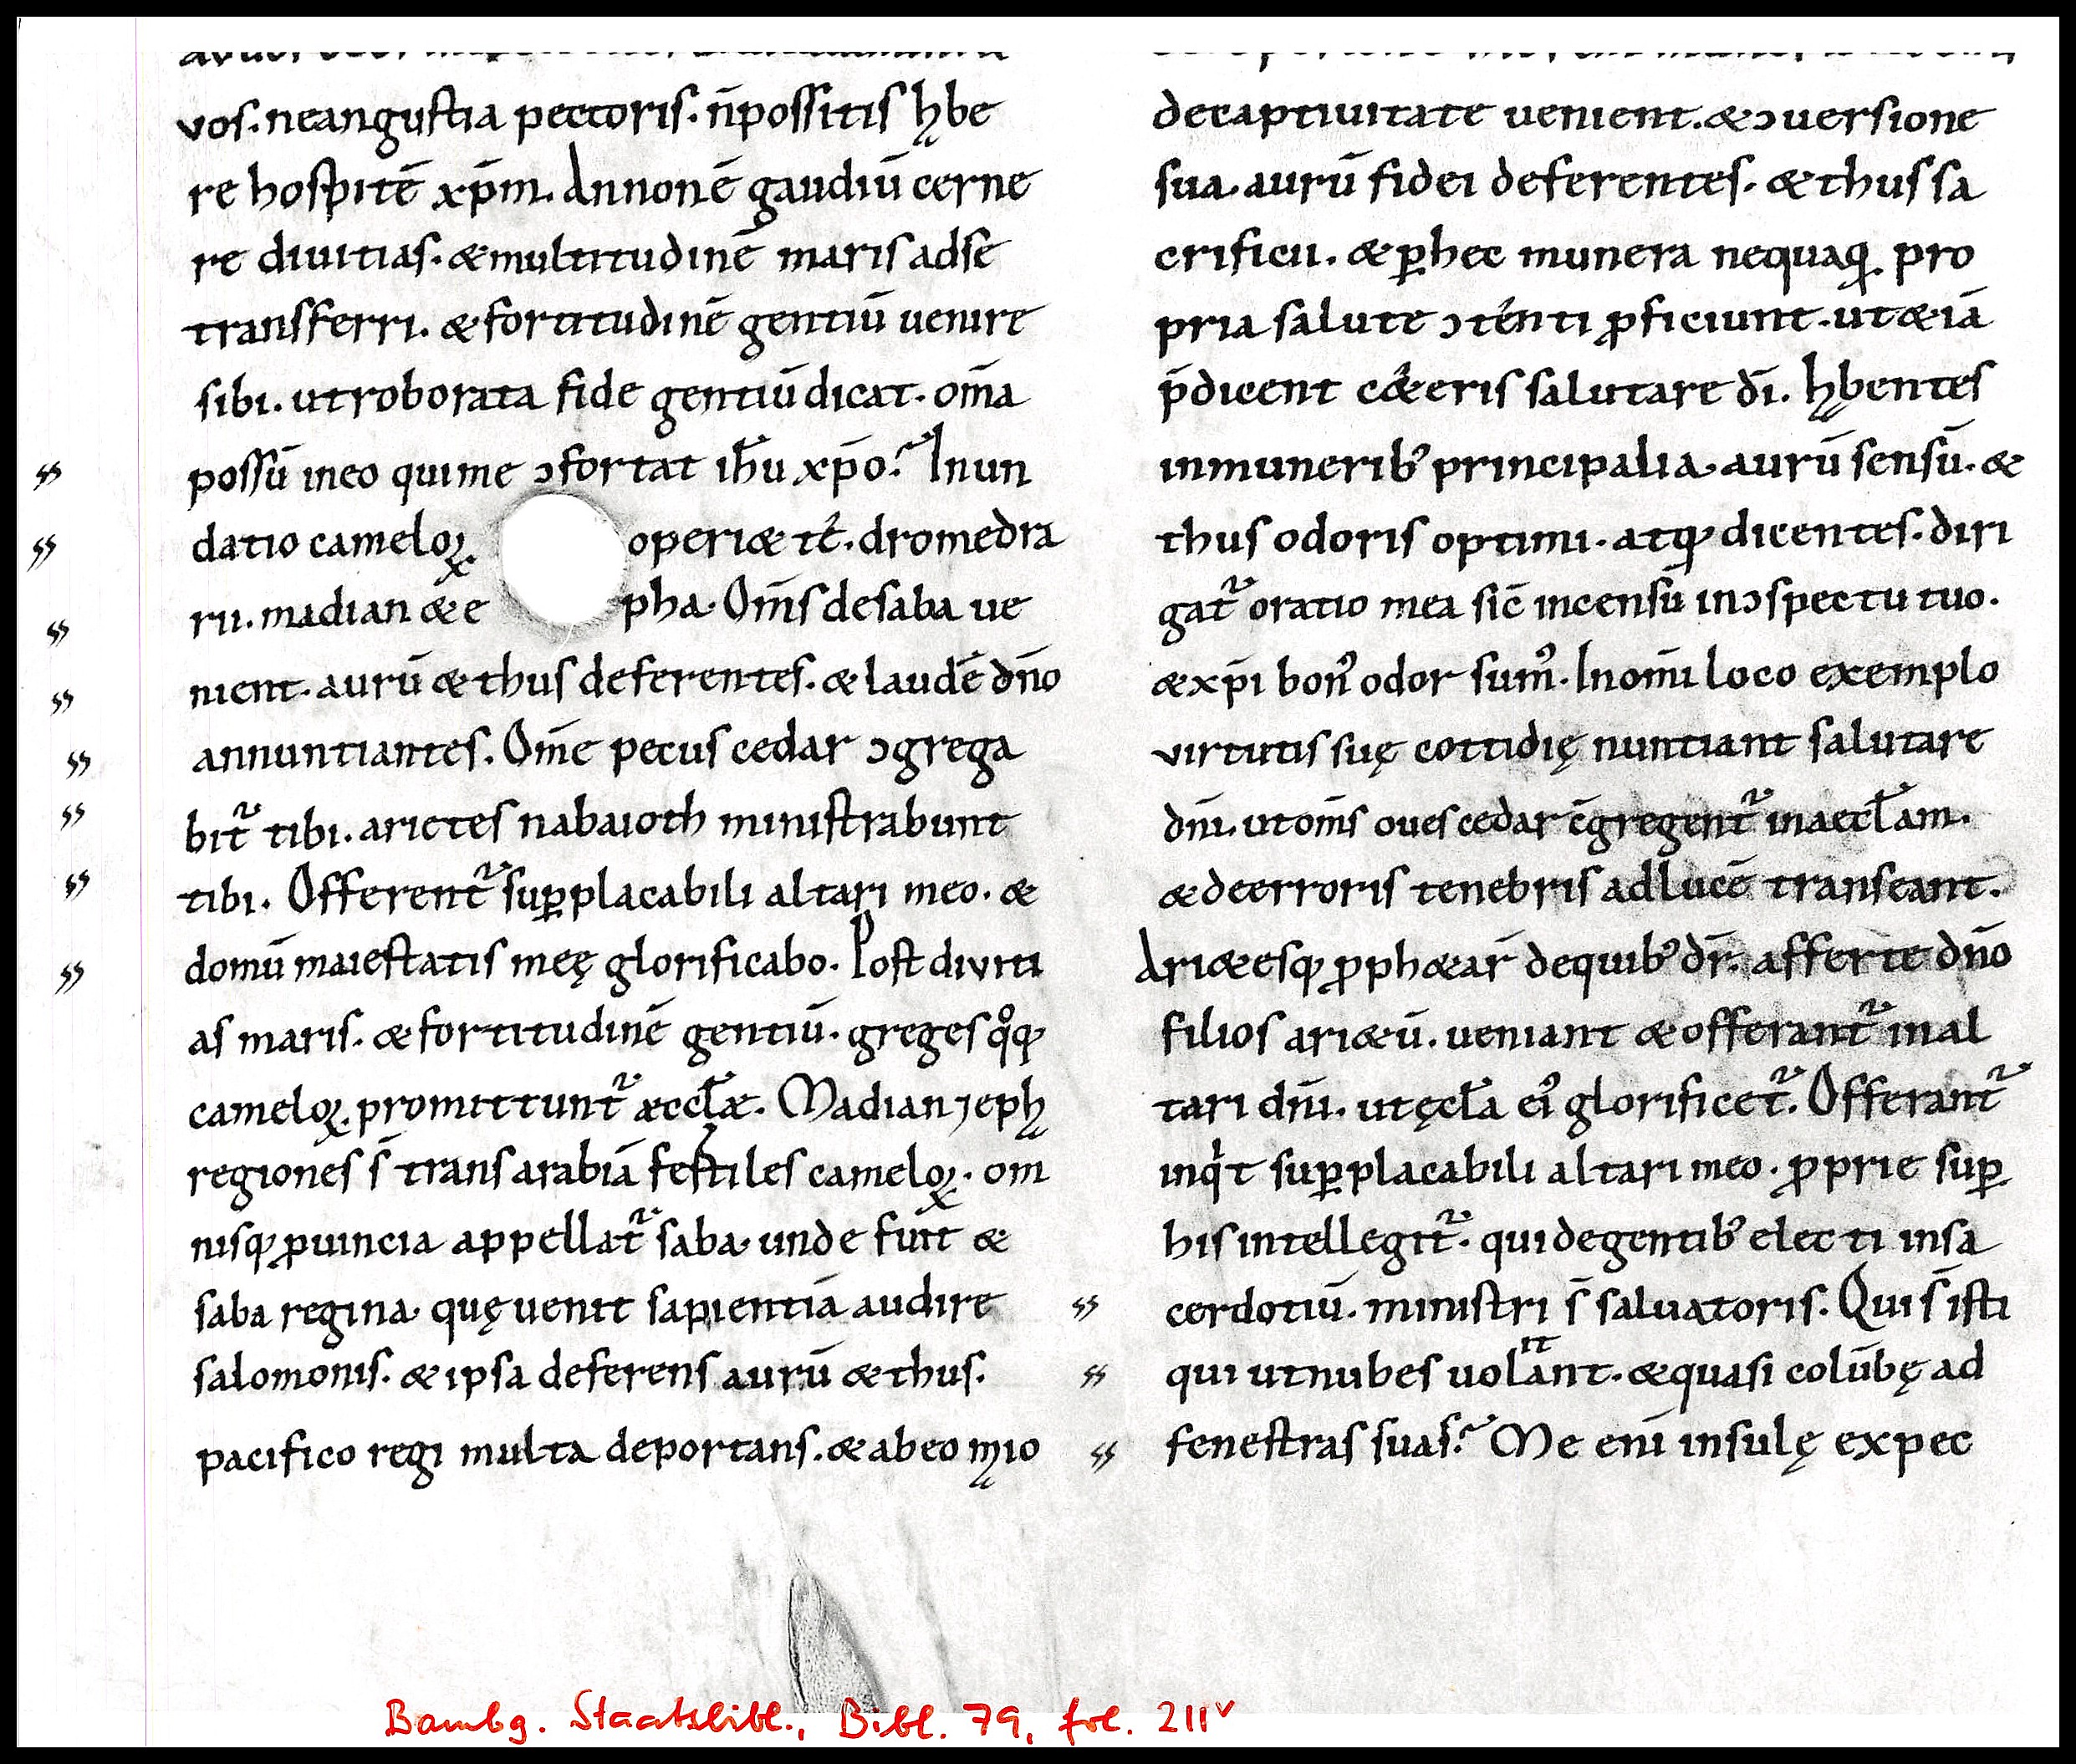 vos. neangustia pectoris. n̄possitis ḥbe
re hospitē xp̄m. Annonē gaudiū cerne
re diuitias. &multitudinē maris adse
transferri. &fortitudinē gentiū uenire
sibi. utroborata fide gentiū dicat. om̄a
possū ineo quime ɔfortat ih̄u xp̄o? Inun
datio cameloꝝ operi&tē. dromedra
rii. madian &e pha. Om̄s desaba ue
nient. aurū &thus deferentes. &laudē dn̄o
annuntiantes. Om̄e pecus cedar ɔgrega
bit᷑ tibi. arietes nabaioth ministrabunt
tibi. Offerent᷑ suꝑplacabili altari meo. &
domū maiestatis meę glorificabo. Post diviti
as maris. &fortitudinē gentiū. greges qͦꝗ
cameloꝝ. promittunt᷑ æccl̄æ. Madian ⁊ eph
regiones s̄ trans arabiā festiles cameloꝝ. om
nisꝗ ꝓuincia appellat᷑ saba. unde fuit &
saba regina. quę uenit sapientiā audire
salomonis. &ipsa deferens aurū &thus.
pacifico regi multa deportans. &abeo mio
decaptiuitate uenient. &ɔuersione
sua. aurū fidei deferentes. &thus sa
crificii. &ꝑhec munera nequaꝗ pro
pria salute ɔtēnti ꝓficiunt. ut&iā
p̄dicent c&eris salutare dī. ḥbentes
inmunerib᾽ principalia. aurū sensū. &
thus odoris optimi. atꝗ dicentes. diri
gat᷑ oratio mea sic̄ incensū inɔspectu tuo.
&xp̄i bon᾽ odor sum᾽. Inom̄i loco exemplo
virtutis suę cottidię nuntiant salutare
dn̄i. utom̄s oues cedar c̄gregent᷑ inaeccl̄am.
&deerroris tenebris adlucē transeant.
Ari&esꝗ ꝓph&ar̄ dequib᾽ dr̄. afferte dn̄o
filios ari&ū. ueniant &offerant᷑ inal
tari dn̄i. utęcl̄a ei᾽ glorificet᷑. Offerant᷑
inqͥt suꝑplacabili altari meo. ꝓprie suꝑ
his intellegit᷑. quidegentib᾽ electi insa
cerdotiū. ministri s̄ saluatoris. Qui s̄ isti
qui utnubes uolant. &quasi colūbę ad
fenestras suas? Me enī insulę expec
Bambg. Staatsbibl., Bibl. 79, fol. 211v